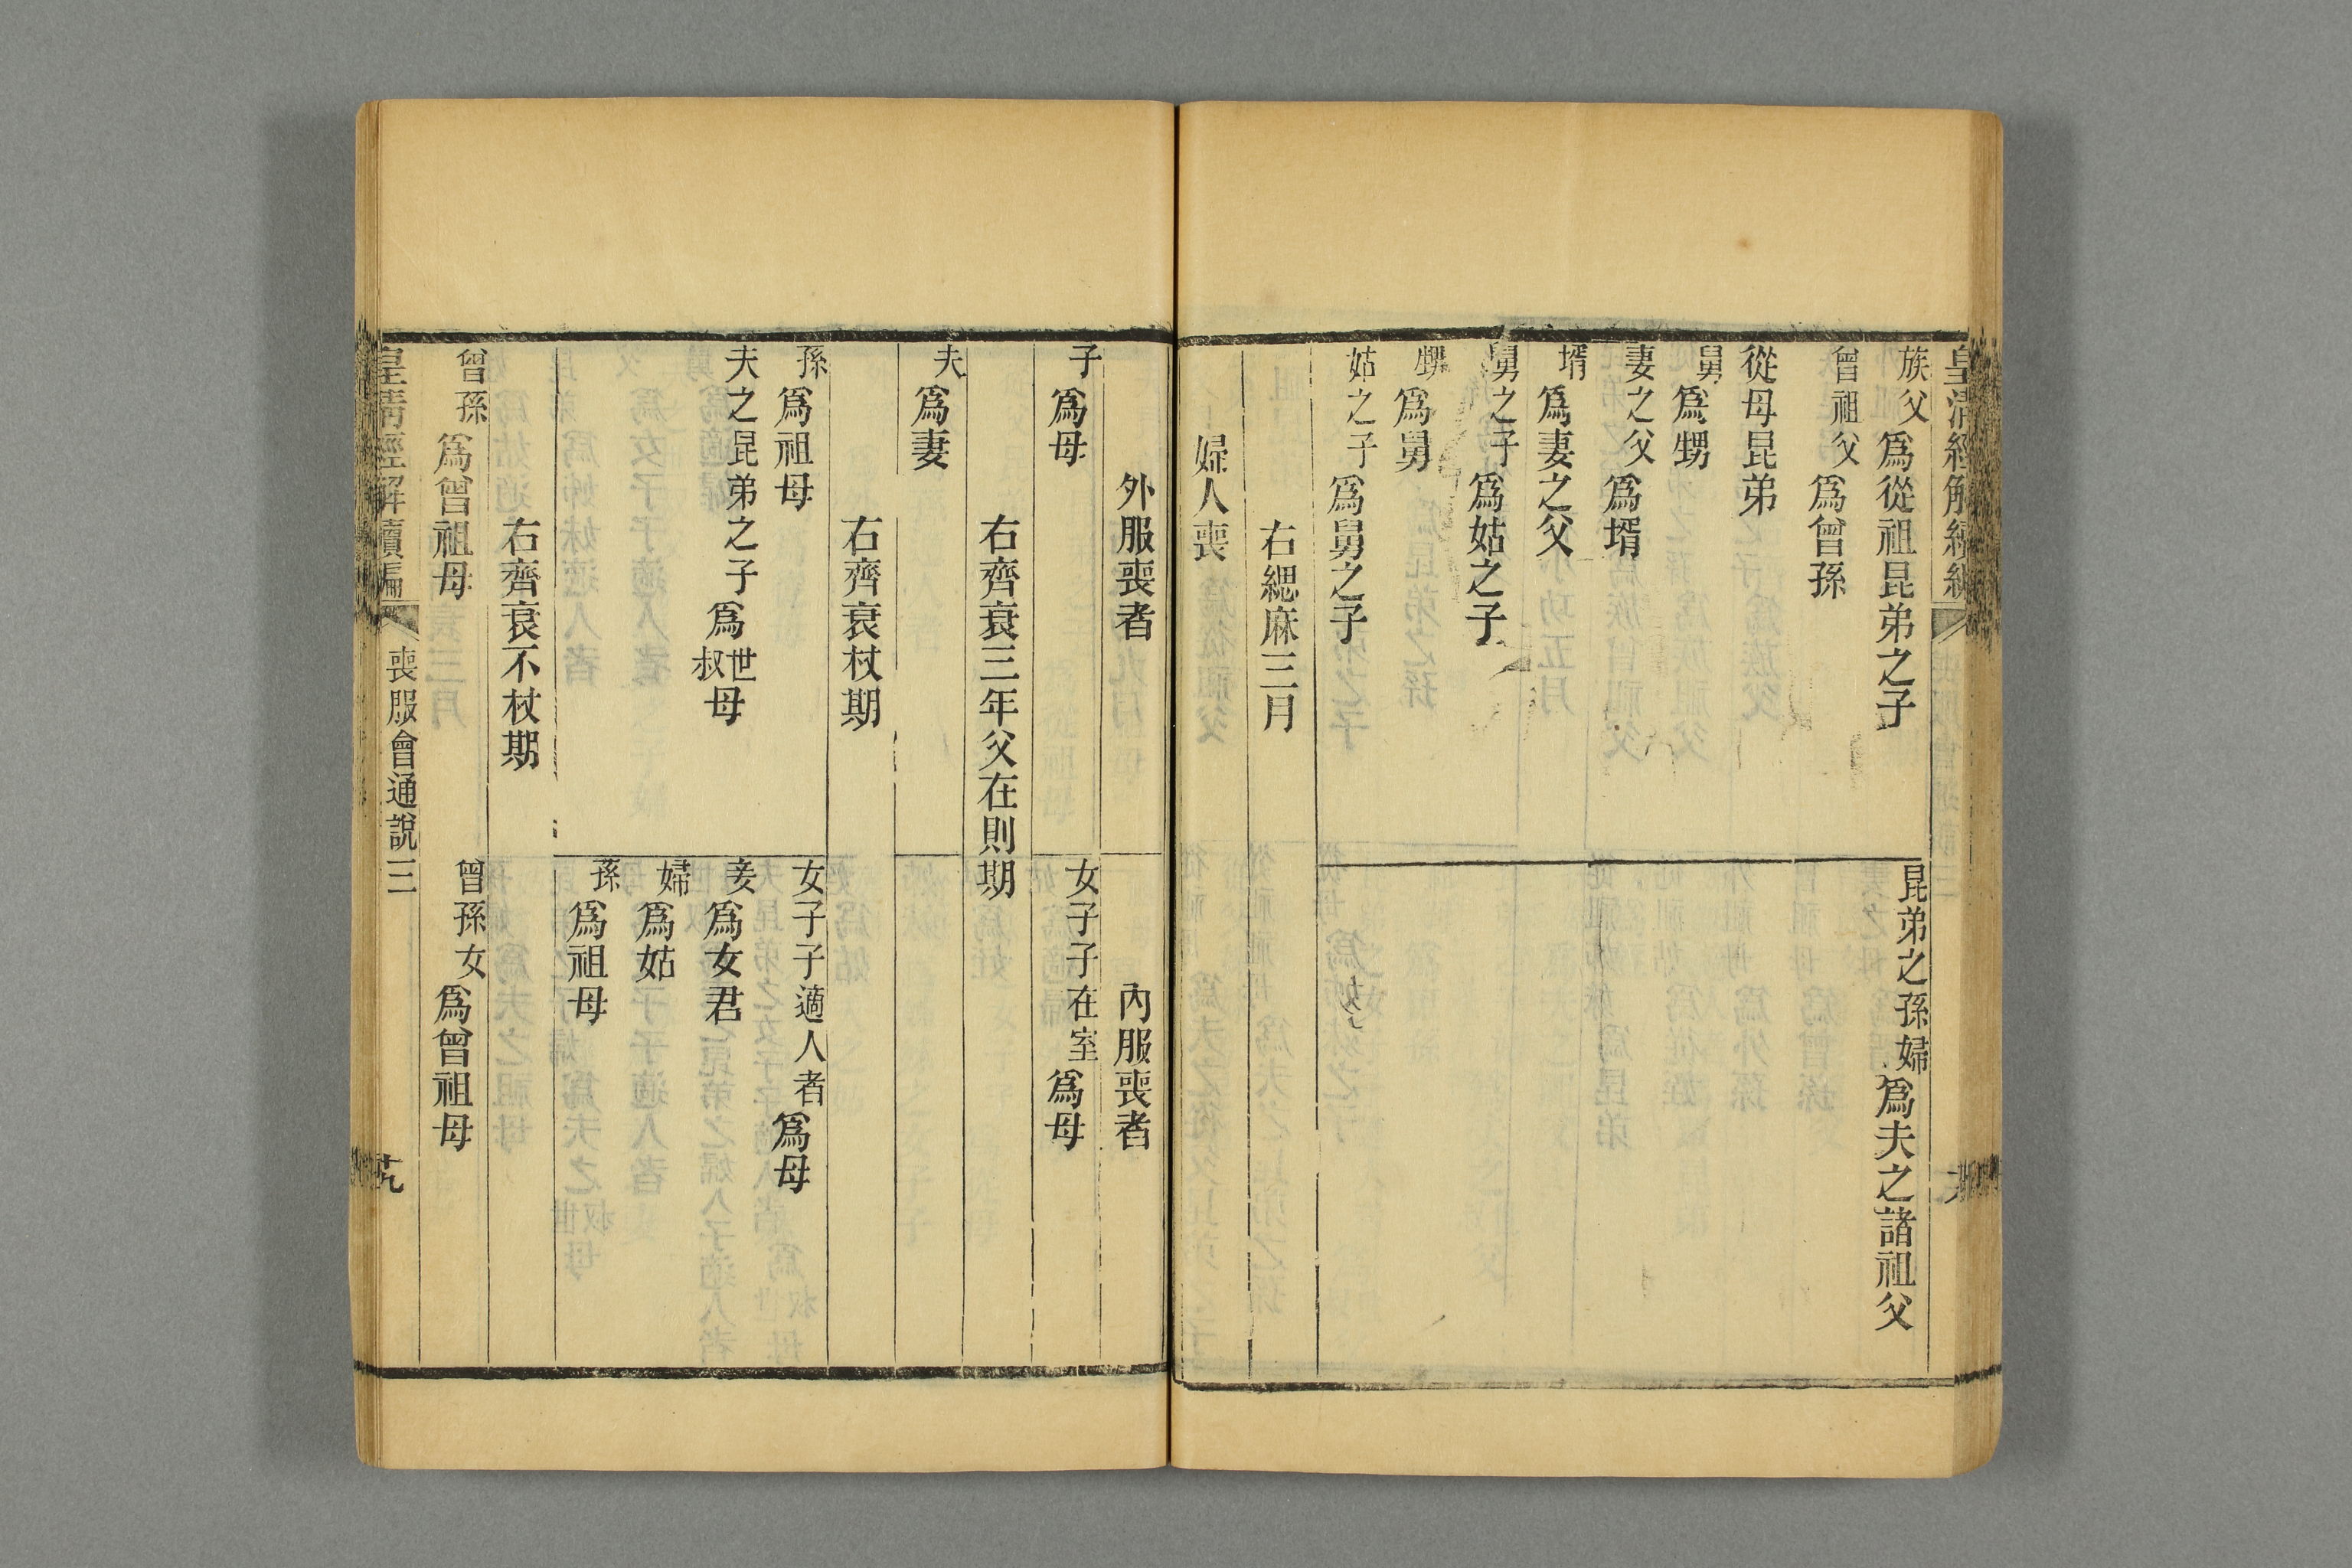 皇清經解續編
族父爲從祖昆弟之子
昆弟之孫婦爲夫之諸祖父
曾祖父爲曾孫
從母昆弟
舅爲甥
妻之父爲壻
壻爲妻之父
舅之子爲姑之子
甥爲舅
姑之子爲舅之子
右緦麻三月
婦人喪
外服喪者
內服喪者
子爲母
女子子在室爲母
右齊衰三年父在則期
夫爲妻
右齊衰杖期
孫爲祖母
女子子適人者爲母
夫之昆弟之子爲世叔母
妾爲女君
婦爲姑
孫爲祖母
右齊衰不杖期
曾孫爲曾祖母
曾孫女爲曾祖母
皇清經解續編 喪服會通說三 芫